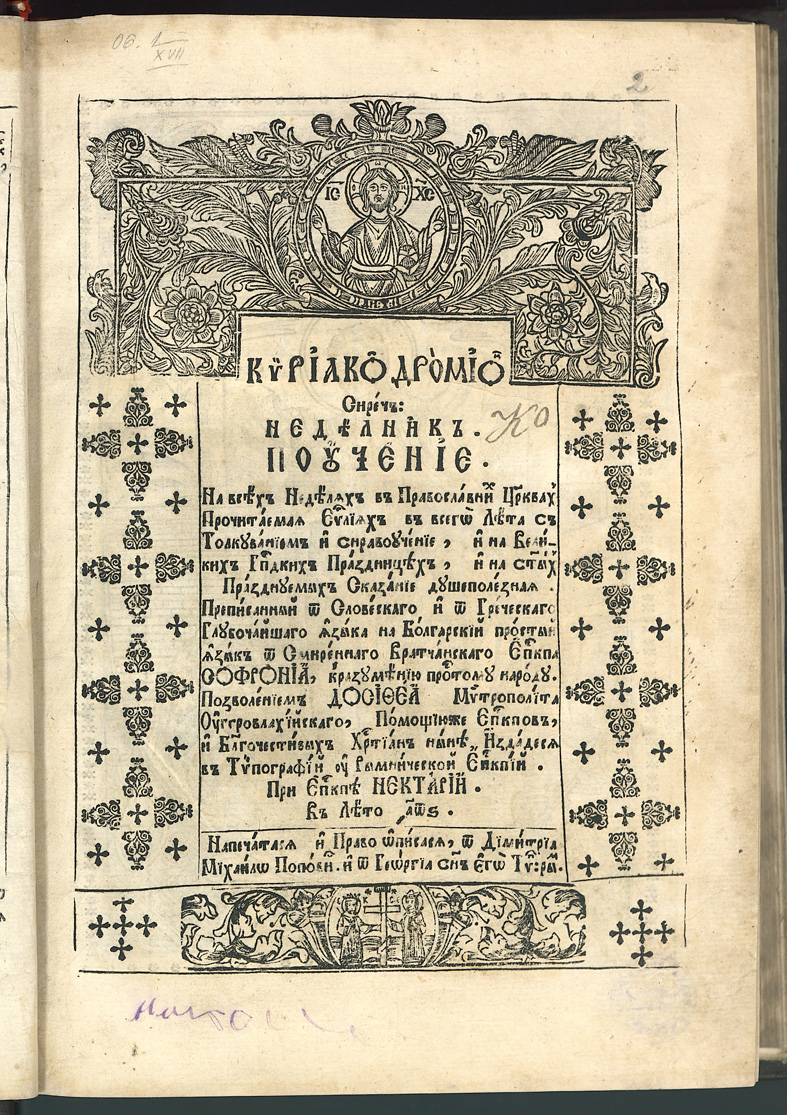 06. 1
XVII
2
ІС ХС
КѴРІАКОДРОМІО
Сирѣчъ:
НЕДѢЛНИКЪ.
Ко
ПОꙊЧЕНІЕ.
На всѣхъ Недѣляхъ въ Православниⷯ Цр҃квахꙋ
Прочитаемая Еѵ҃ліяхъ въ всегѡ Лѣта съ
Толкꙋваніемъ и справоꙋченіе, и на Вели-
кихъ Гпⷭ҇дкихъ Праздницѣхъ, и на ст҃ыхꙋ
Празднꙋемыхъ Сказаніе дꙋшеполезная.
Преписанный ѿ Словенскаго и ѿ Греческаго
Глꙋбочайшаго ꙗзыка на Болгарскій простый
ꙗзыкъ ѿ Смиреннаго Вратчанскаго Епⷭ҇кпа
СОФРОНІА, кразꙋмѣнію простомꙋ народꙋ.
Позволеніемъ ДОСІѲЕА Мѵтрополіта
Оꙋггровлахійскаго, Помощіюже Епⷭ҇кповъ,
и Бл҃гочестивыхъ Хрⷭ҇тіанъ нынѣ, Издадеся
въ Тѵпографій оꙋ Рымнической Епⷭ҇кпій.
При Епⷭ҇кпѣ НЕКТАРІЙ.
Въ Лѣто ҂аѿѕ.
Напечатася и Право ѡписася, ѿ Димитріа
Міхаилѡ Поповиⷱ. и ѿ Геѡргіа сн҃ъ Егѡ Тѵ҃:рыⷨ.